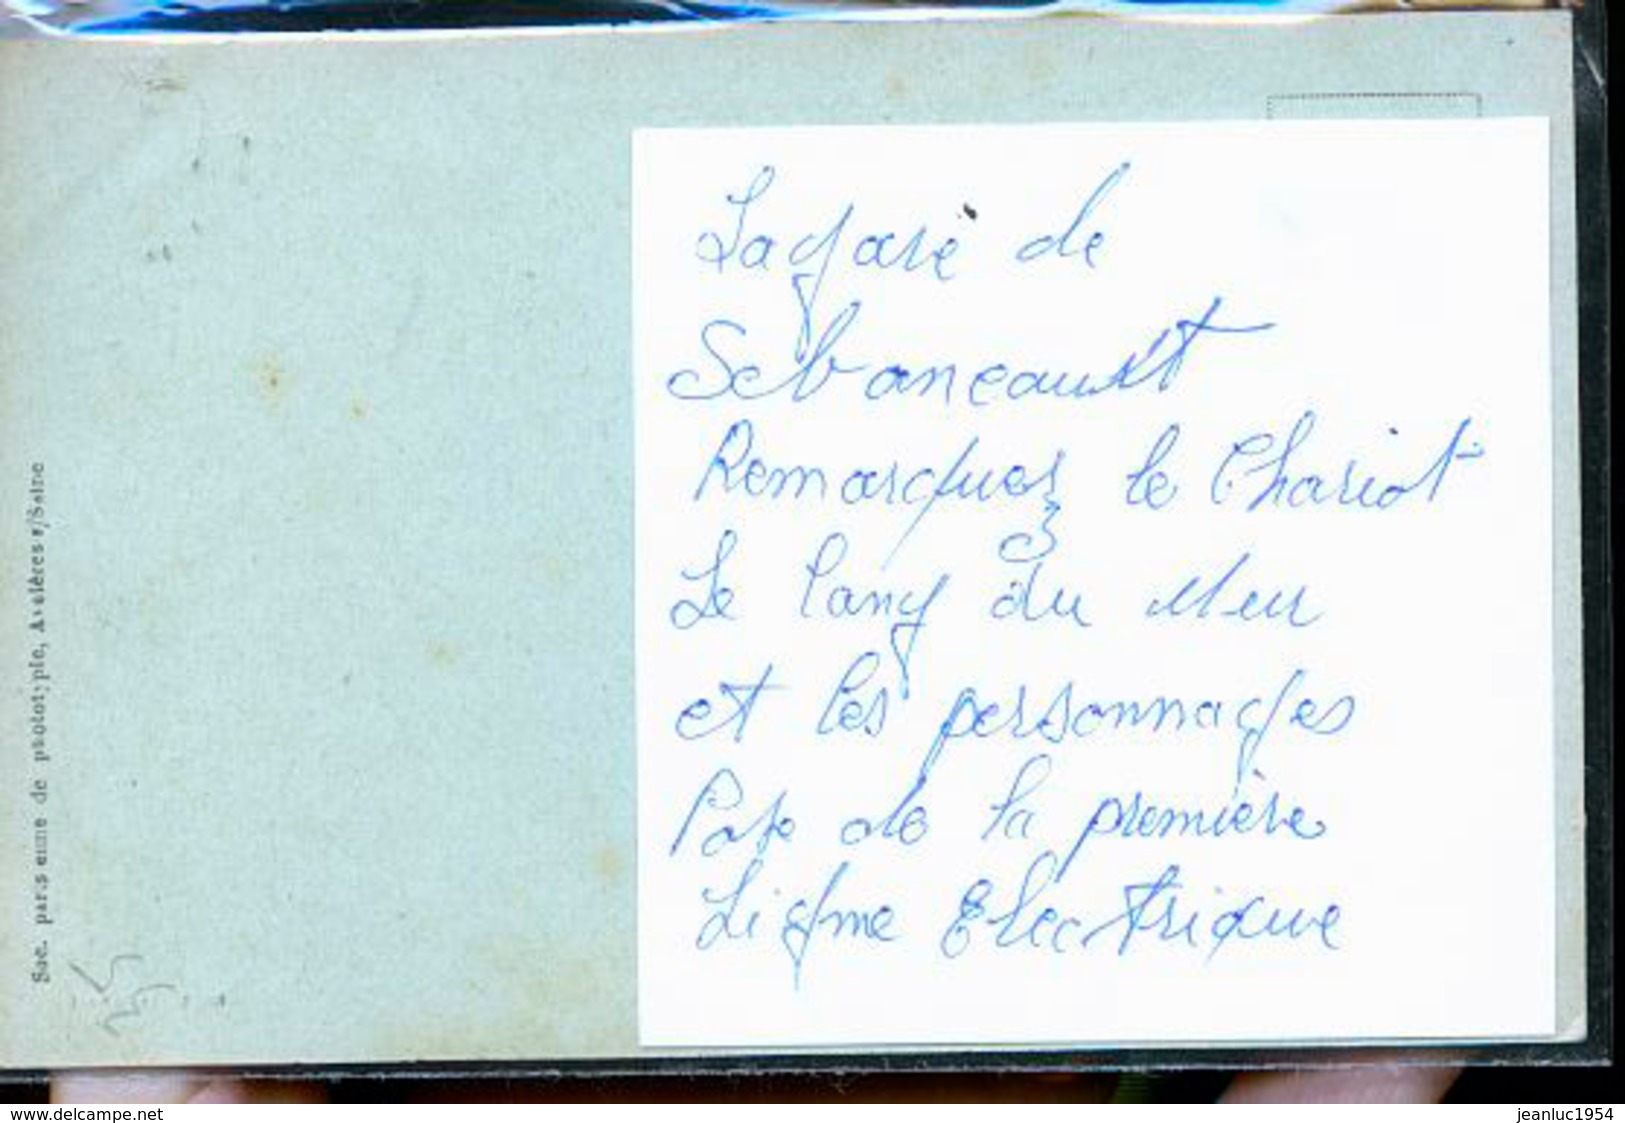 La gare de
Sebancault
Remarquez le Chariot
Le long du Mur
et les personnages
Pote de la première
Ligne Electrique
Soc. parisienne de phototypie, Asnières s/Seine
www.delcampe.net
jeanluc1954